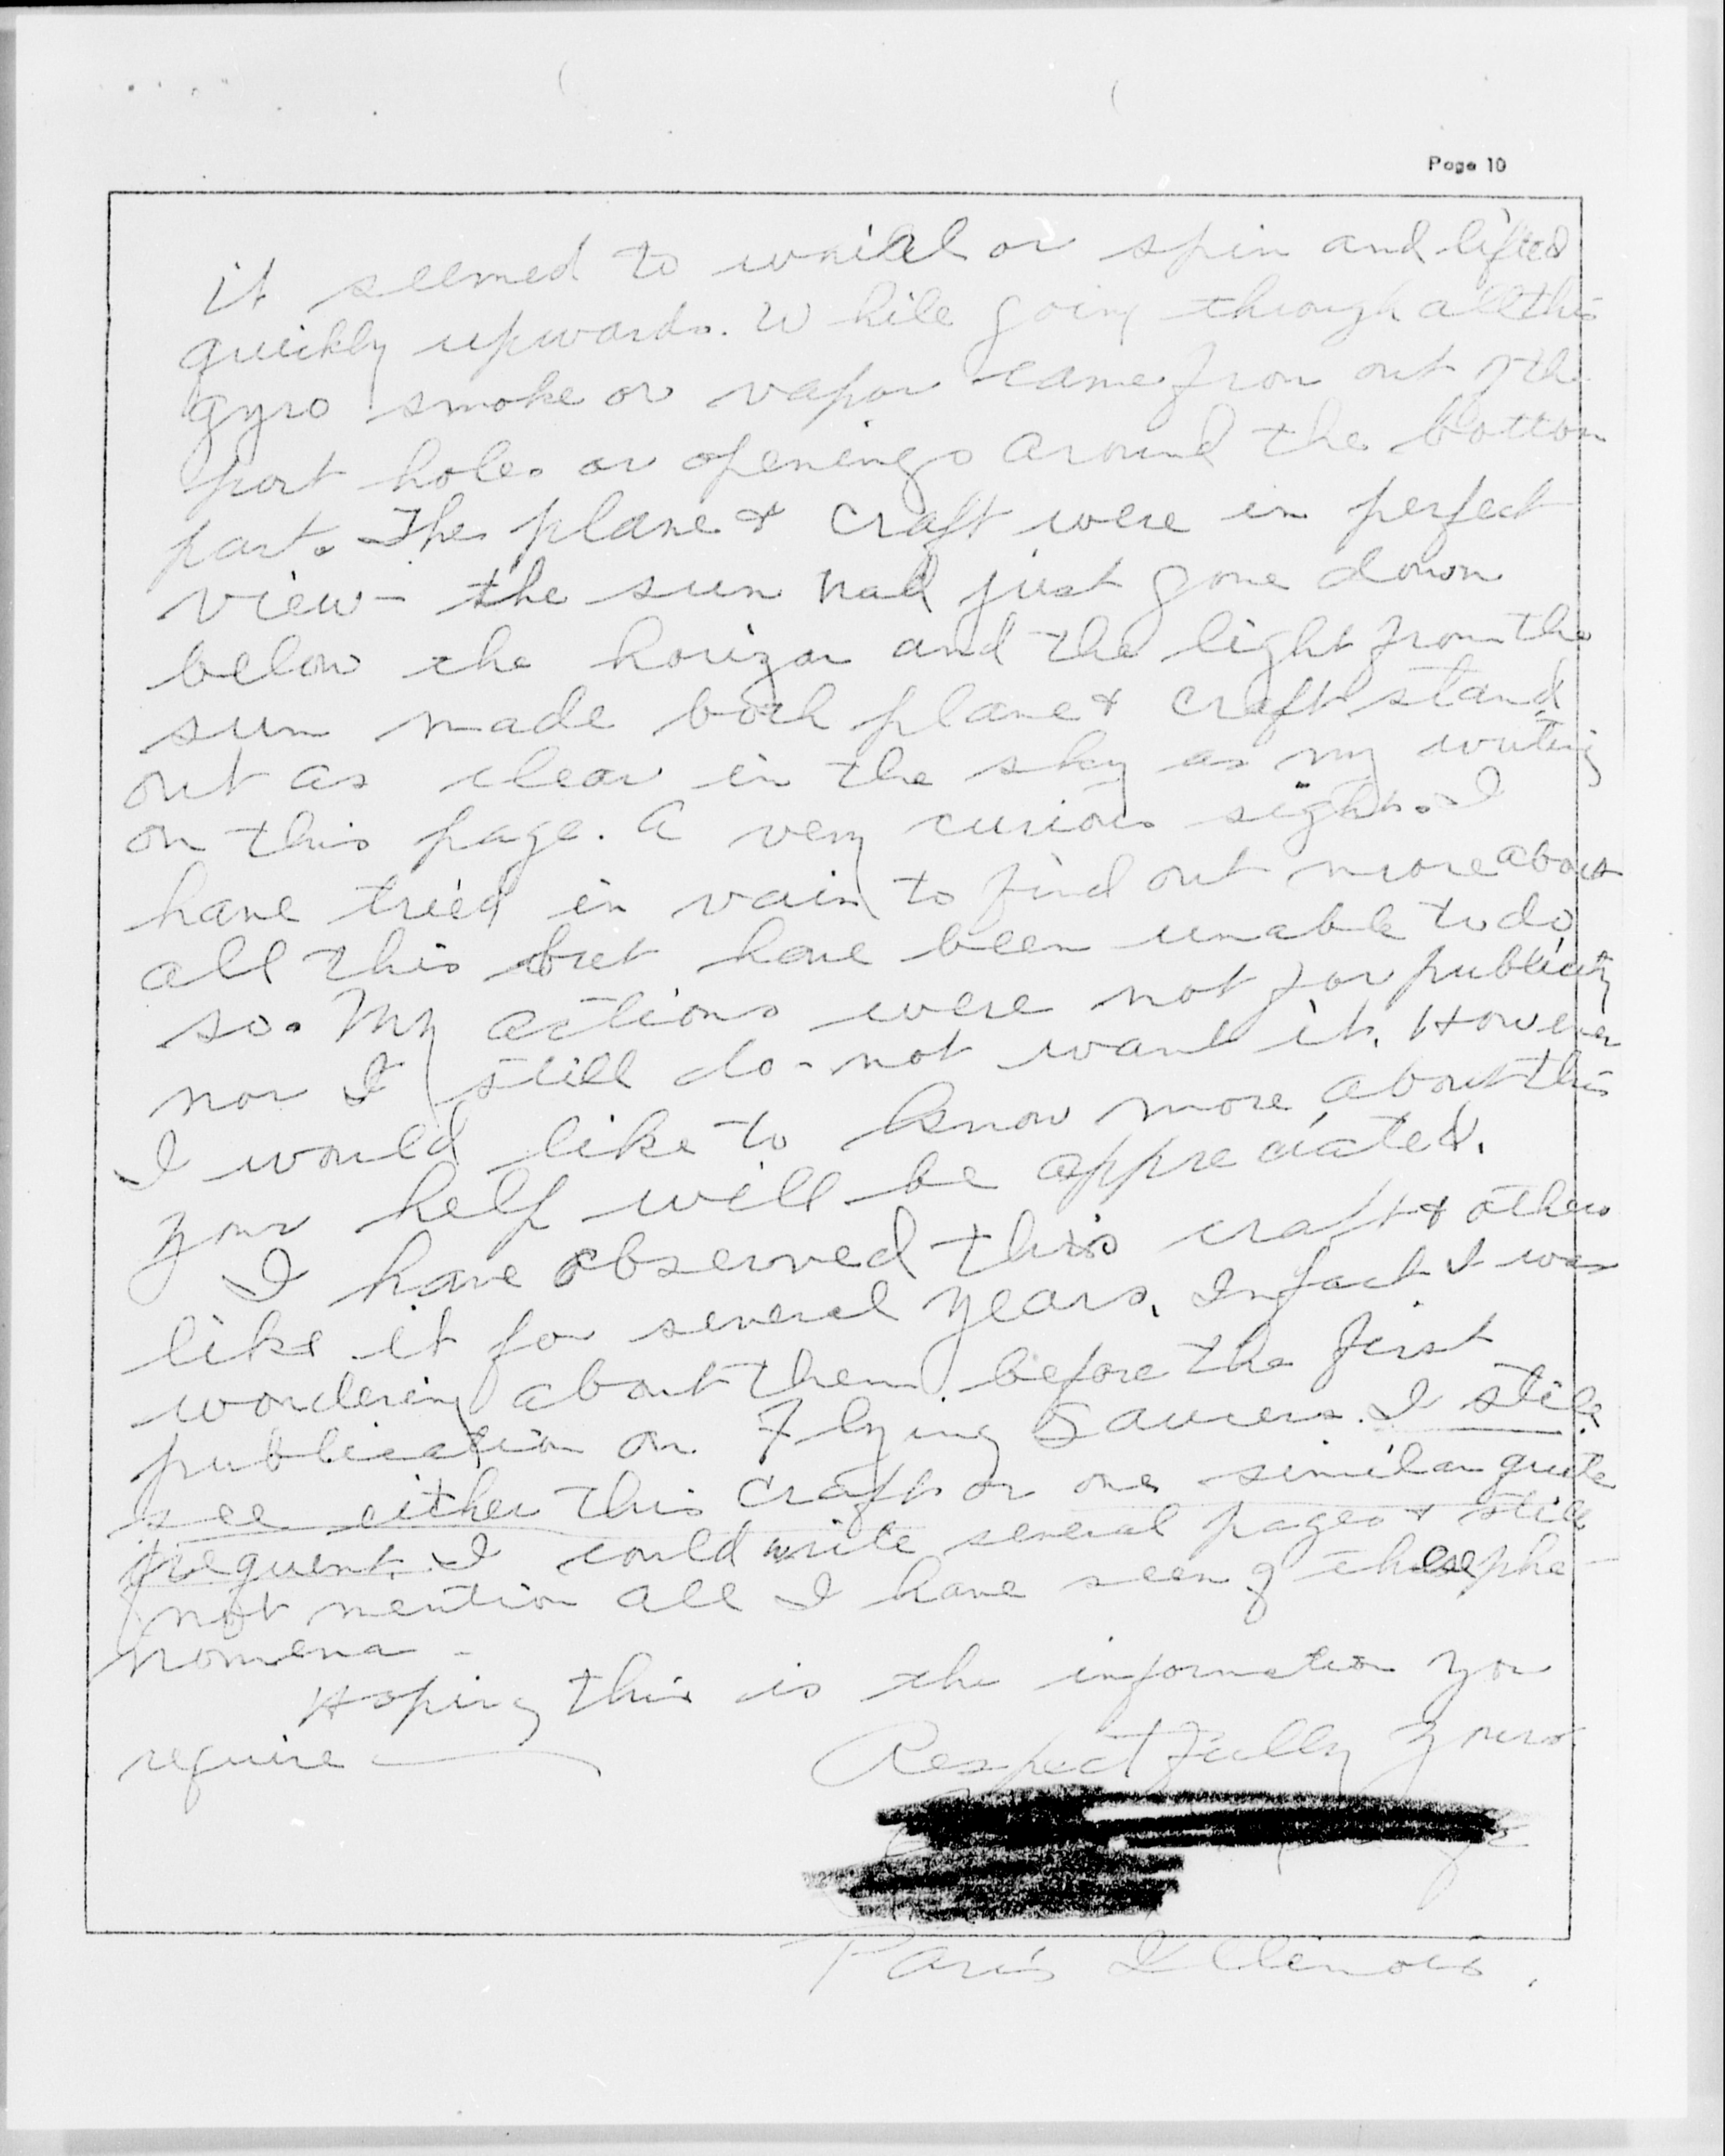 Page 10
it seemed to whirl or spin and lifted
quickly upwards. While going through all this
gyro smoke or vapor came from out of the
port holes or openings around the bottom
part. The plane & craft were in perfect
view - the sun had just gone down
below the horizon and the light from the
sun made both plane & craft stand
out as clear in the sky as my writing
on this page. A very curious sight. I
have tried in vain to find out more about
all this but have been unable to do
so. My actions were not for publicity
nor I still do - not want it. However
I would like to know more about this
your help will be appreciated.
I have observed this craft & others
like it for several years. Infact I was
wondering about them before the first
publication on Flying Saucers. I still
see either this craft or one similar quite
frequent. I could write several pages & still
not mention all I have seen of these phe-
nomena -
Hoping this is the information you
require
Respectfully yours
Paris Illinois.